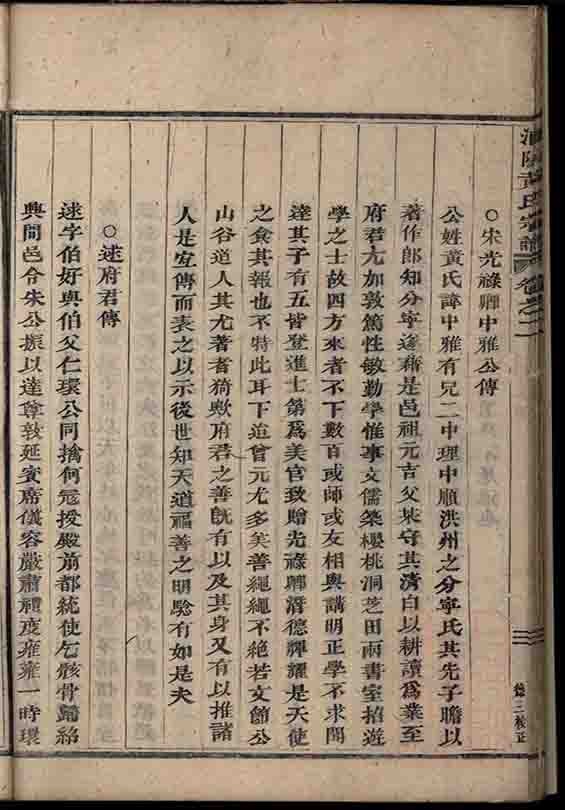 浦陽黃氏宗譜 卷之二
○宋光祿卿中雅公傳
公姓黃氏諱中雅有兄二中理中順洪州之分寧氏其先子瞻以
著作郎知分寧遂藉是邑祖元吉父某守其清白以耕讀為業至
府君尤加敦篤性敏勤學惟事文儒築櫻桃洞芝田兩書室招遊
學之士故四方來者不下數百或師或友相與講明正學不求聞
達其子有五皆登進士第為美官致贈光祿卿潛德禪耀是天使
之食其報也不特此耳下迨曾元尤多矣善繩繩不絕若文節公
山谷道人其尤著者猗歟府君之善既有以及其身又有以推諸
人是宜傳而表之以示後世知天道福善之明騐有如是夫
○逑府君傳
逑字伯好與伯父仁環公同擒何冦授殿前都統使乞骸骨歸紹
興間邑令朱公振以達尊敦延賓席儀容嚴肅禮度雍雍一時環
三校正